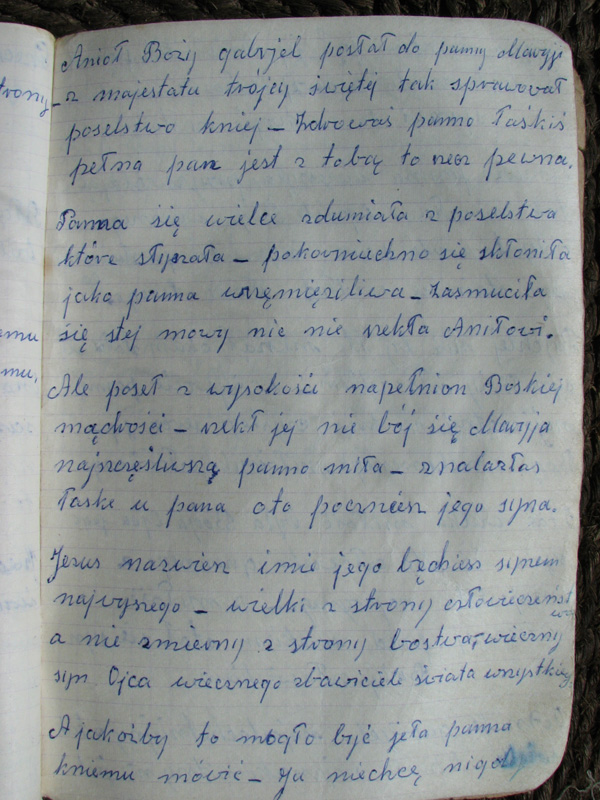 trony
emu
mu,
Anioł Boży gabrjel posłał do panny Maryji
z majestatu trojcy świętej tak sprawował
poselstwo kniej – Zdrowaś panno łaśkiś
pełna pan jest z tobą to rzecz pewna.
Panna się wielce zdumiała z poselstwa
które słyszała – pokorniuchno się skłoniła
jako panna – Zasmuciła
się stej mowy nic nie rekła Aniłowi.
Ale poseł z wysokości napełnion Boskiej
mądrości – rekł jej nie bój się Maryja
najszczęśliwszą panno miła – znalazłas
łaske u pana oto poczniesz jego syna.
Jezus nazwiesz imie jego będzies synem
najwyszego – wielki z strony człowieczeństwa
a nie zmierny z strony bostwa, wieczny
syn Ojca wiecznego zbawiciele świata wszystkiego
A jakożby to mogło być jeła panna
kniemu mówić – Ja niechcę nigdy